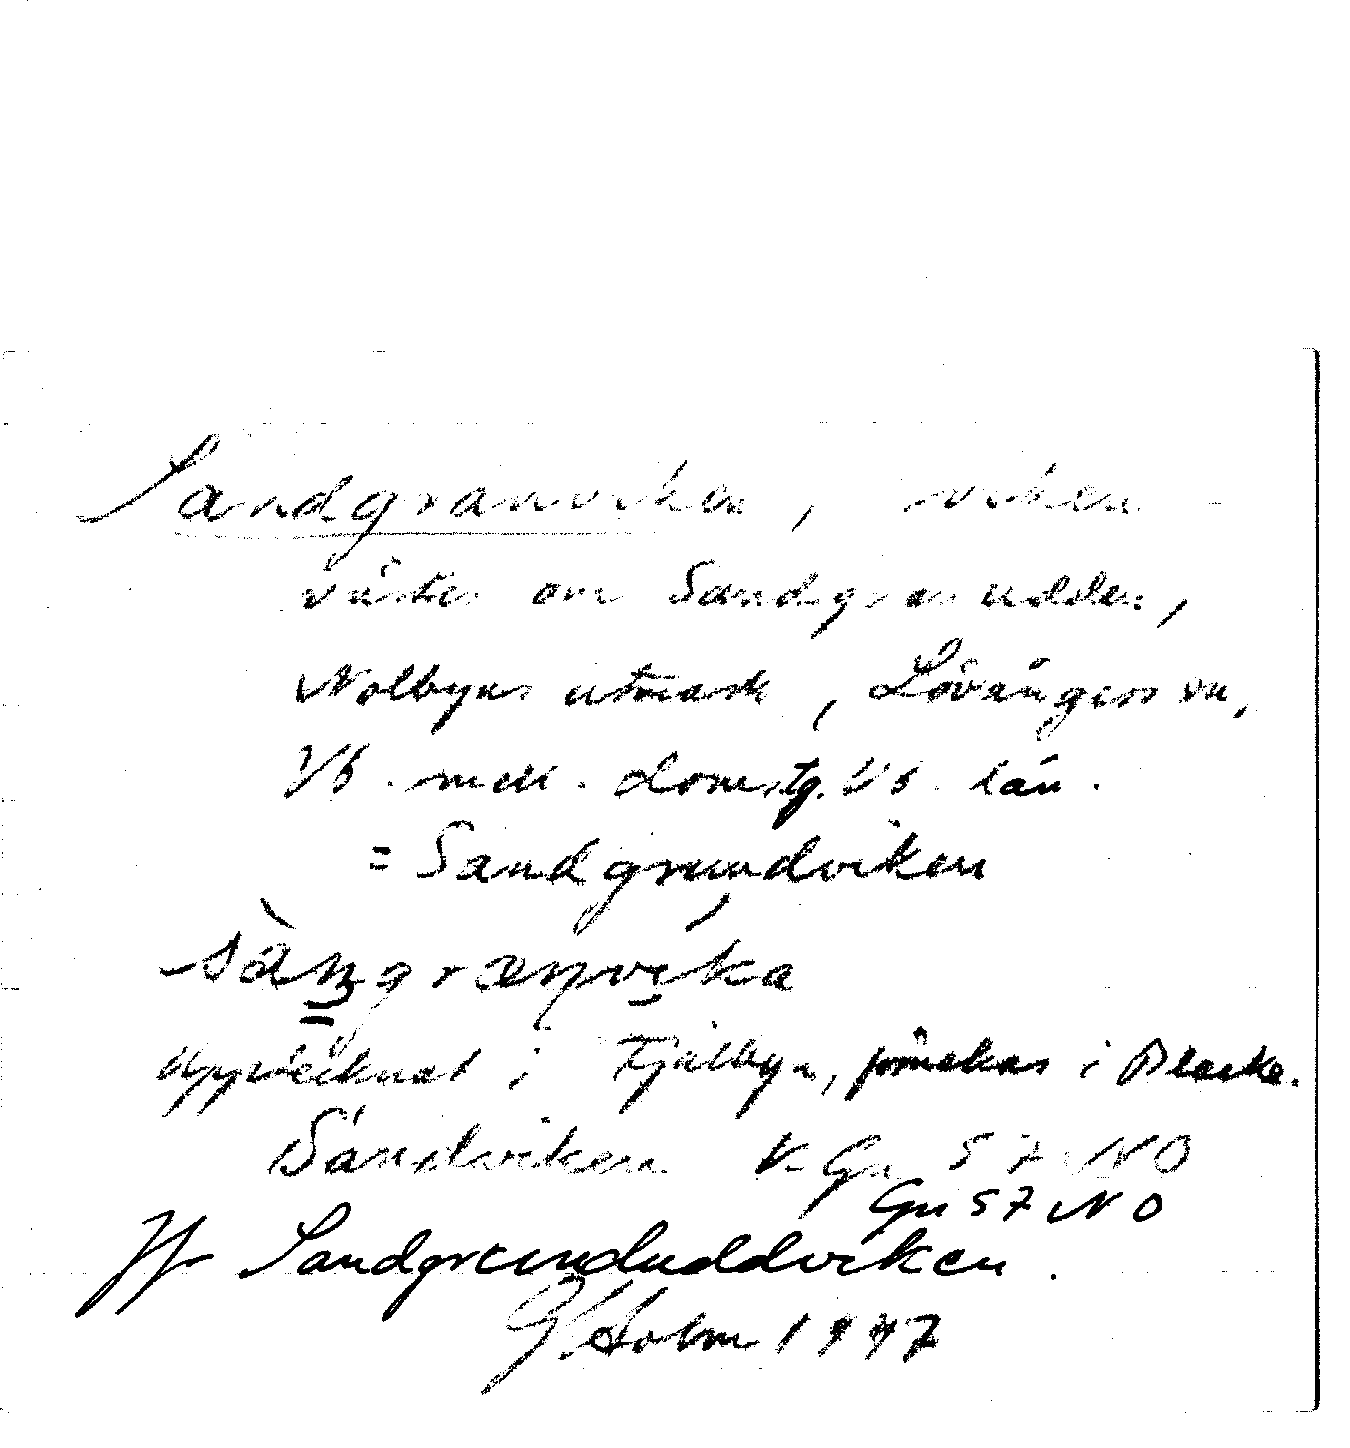 Sandgranviken, viken
väster om Sandgranudden,
Nolbyns utmark, Lövångers sn,
Vb. mell. domstg. Vb. län.
= Sandgrundviken
sàngrænvika
Upptecknat i Fjälbyn, i Blacke.
Sandviken K Gn 57 NO
Gn 57 NO
Jfr Sandgrunduddviken.
G. Holm 1947